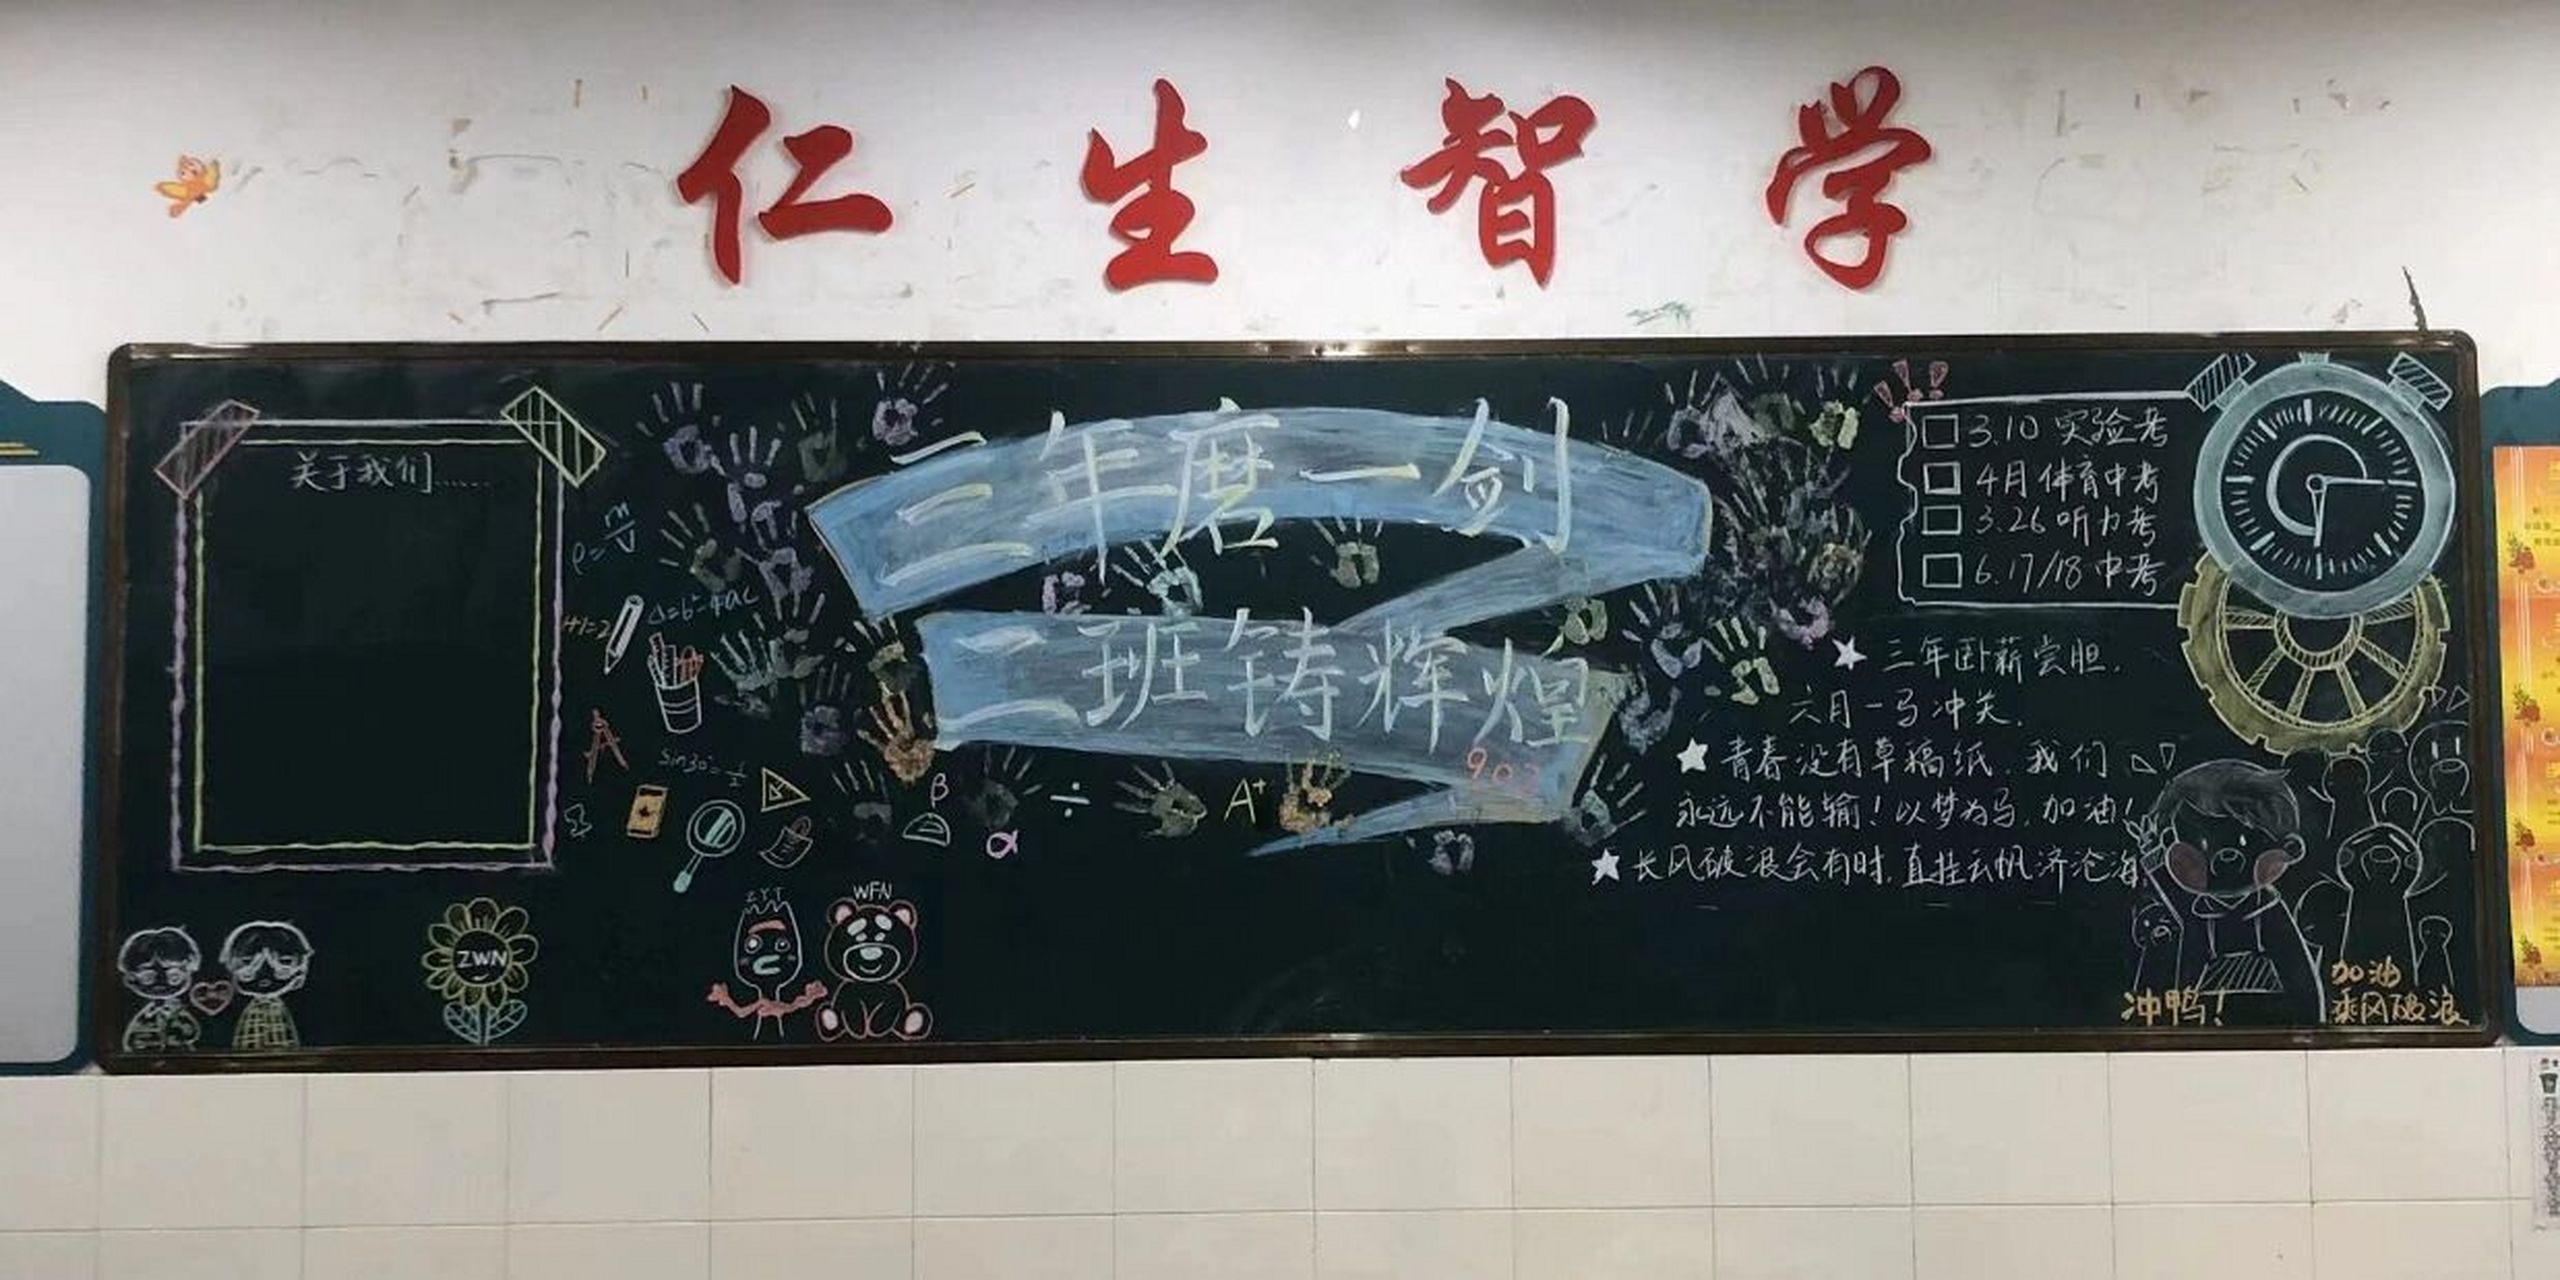 仁生智学
关于我们......
三年磨一剑
二班铸辉煌
902
ρ=m/V
1+1=2
Δ=b²-4ac
sin30°=1/2
β
α
÷
A+
3.10 实验考
4月 体育中考
3.26 听力考
6.17/18 中考
三年卧薪尝胆.
六月一马冲关.
青春没有草稿纸.我们
永远不能输!以梦为马.加油!
长风破浪会有时.直挂云帆济沧海.
ZWN
ZYT
WFN
冲鸭!
加油
乘风破浪